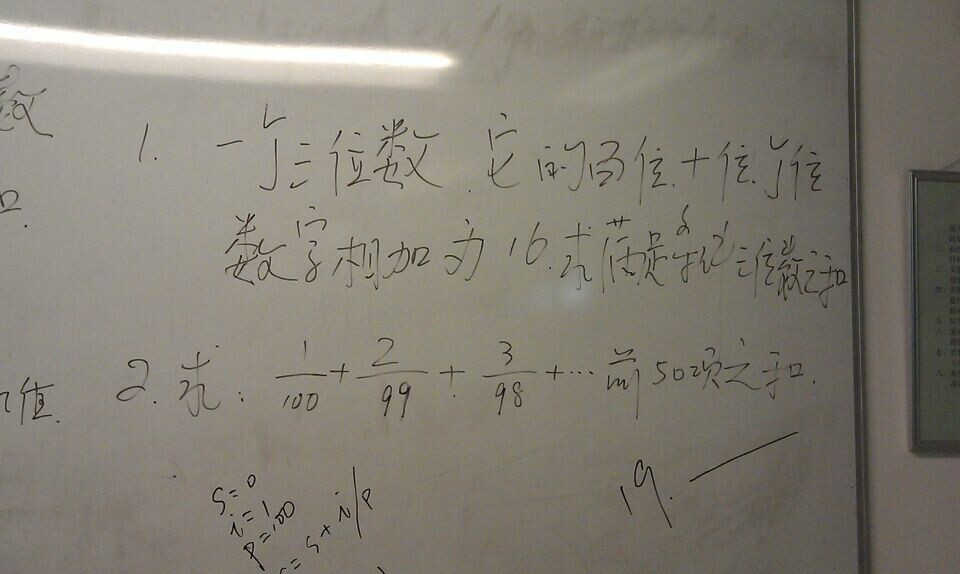 数
1. 一个三位数.它的百位.十位.个位
数字相加为16.求满足条件三位数之和
值.
2.求: 1/100 + 2/99 + 3/98 + … 前50项之和.
S=0
i=1
P=100
S=S+i/P
19.